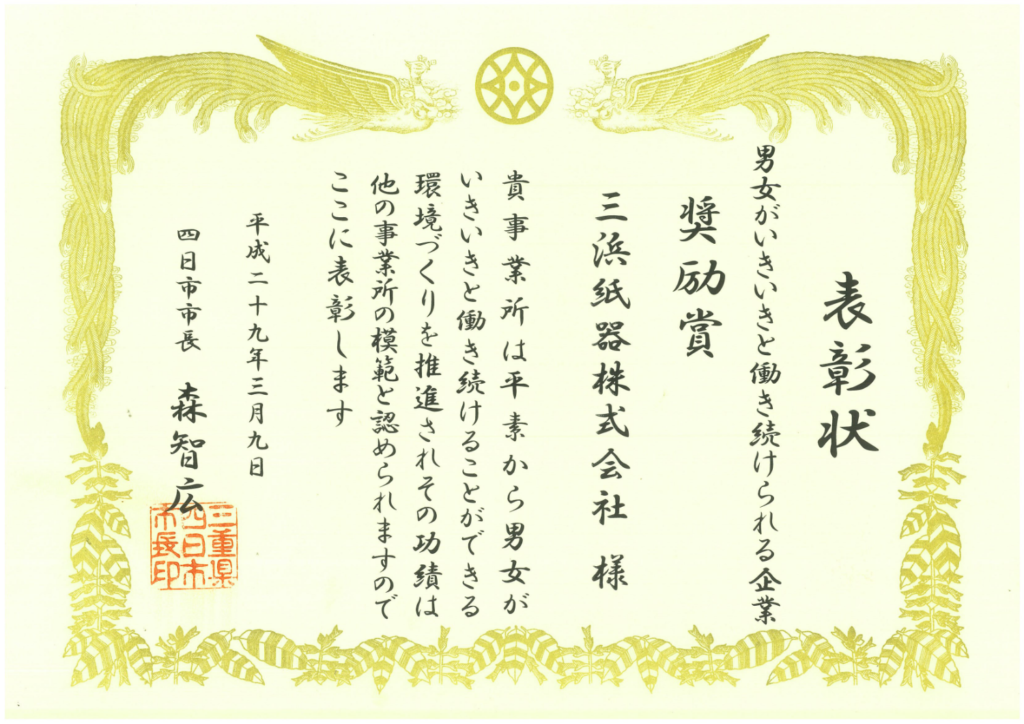 表彰状
男女がいきいきと働き続けられる企業
奨励賞
三浜紙器株式会社 様
貴事業所は平素から男女が
いきいきと働き続けることができる
環境づくりを推進されその功績は
他の事業所の模範と認められますので
ここに表彰します
平成二十九年三月九日
四日市市長 森智広
三重県
四日市
市長印